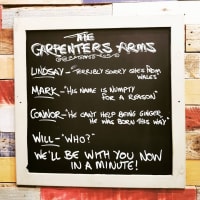 THE
CARPENTERS ARMS
LINDSAY - "TERRIBLY SORRY SHE'S FROM
WALES"
MARK - "HIS NAME IS NUMPTY
FOR A REASON"
CONNOR - "HE CAN'T HELP BEING GINGER
HE WAS BORN THIS WAY"
WILL - "WHO?"
WE'LL BE WITH YOU NOW
IN A MINUTE!